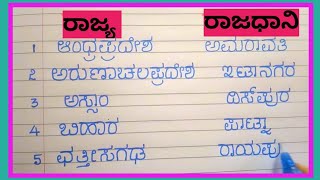 ರಾಜ್ಯ ರಾಜಧಾನಿ
1 ಆಂಧ್ರಪ್ರದೇಶ ಅಮರಾವತಿ
2 ಅರುಣಾಚಲಪ್ರದೇಶ ಇಟಾನಗರ
3 ಅಸ್ಸಾಂ ದಿಸ್ಪುರ
4 ಬಿಹಾರ ಪಾಟ್ನಾ
5 ಛತ್ತೀಸಗಢ ರಾಯಪು